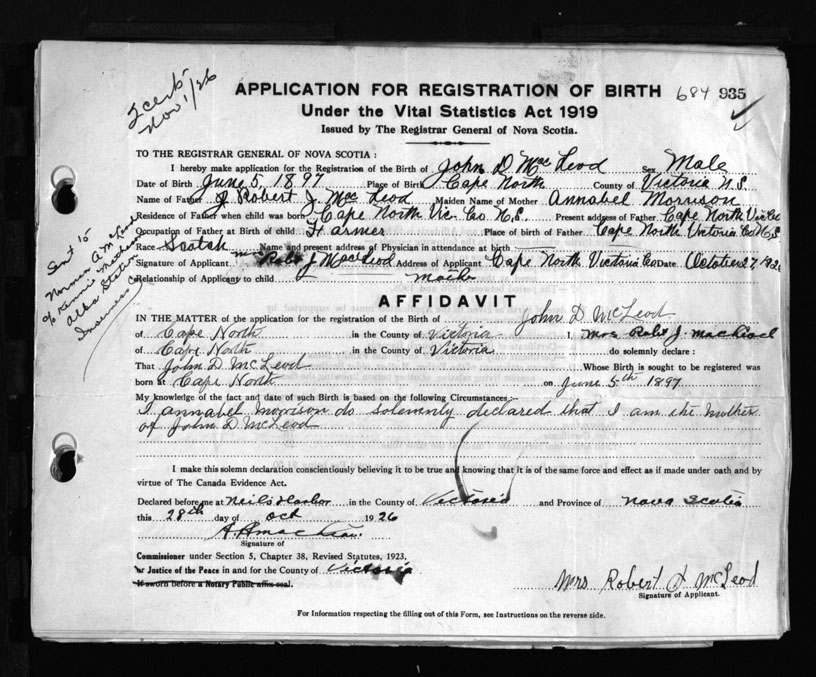 2 cert.
Nov 1/26
APPLICATION FOR REGISTRATION OF BIRTH 684 935
Under the Vital Statistics Act 1919
Issued by The Registrar General of Nova Scotia.
TO THE REGISTRAR GENERAL OF NOVA SCOTIA :
I hereby make application for the Registration of the Birth of John D MacLeod Sex Male
Date of Birth June 5, 1897 Place of Birth Cape North County of Victoria N.S.
Name of Father Robert J MacLeod Maiden Name of Mother Annabel Morrison
Residence of Father when child was born Cape North Vic Co N.S Present address of Father Cape North Vic Co
Occupation of Father at Birth of child Farmer Place of birth of Father Cape North Victoria Co N.S
Race Scotch Name and present address of Physician in attendance at birth
Signature of Applicant Mrs Robt J MacLeod Address of Applicant Cape North Victoria Co Date October 27, 1926
Relationship of Applicant to child Mother
Sent to
Norman A McLeod
Alba Station
Inverness Co
AFFIDAVIT
IN THE MATTER of the application for the registration of the Birth of John D McLeod
of Cape North in the County of Victoria I, Mrs Robt J. MacLeod
of Cape North in the County of Victoria do solemnly declare :
That John D McLeod Whose Birth is sought to be registered was
born at Cape North on June 5th 1897
My knowledge of the fact and date of such Birth is based on the following Circumstances:-
I Annabel Morrison do solemnly declared that I am the Mother
of John D McLeod
I make this solemn declaration conscientiously believing it to be true and knowing that it is of the same force and effect as if made under oath and by
virtue of The Canada Evidence Act.
Declared before me at Neils Harbor in the County of Victoria and Province of Nova Scotia
this 28th day of Oct 1926
Signature of
Commissioner under Section 5, Chapter 38, Revised Statutes, 1923.
or Justice of the Peace in and for the County of Victoria
If sworn before a Notary Public affix seal.
Mrs Robert J McLeod
Signature of Applicant.
For Information respecting the filling out of this Form, see Instructions on the reverse side.